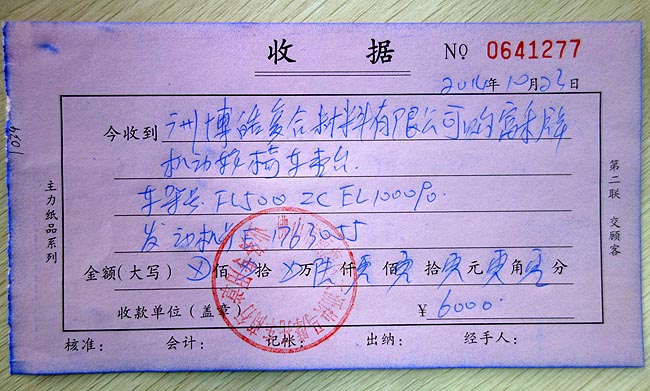 收 据 No 0641277
2014年10月23日
今收到 广州博皓复合材料有限公司购富禾牌
机动轮椅车壹台
车架号 FL500 ZC EL100090
发动机号 E 1763055
金额(大写) 佰 拾 万 陆 仟 零 佰 零 拾 零 元 零 角 零 分
收款单位(盖章) ¥ 6000.
核准: 会计: 记帐: 出纳: 经手人:
主力纸品系列
第二联 交顾客